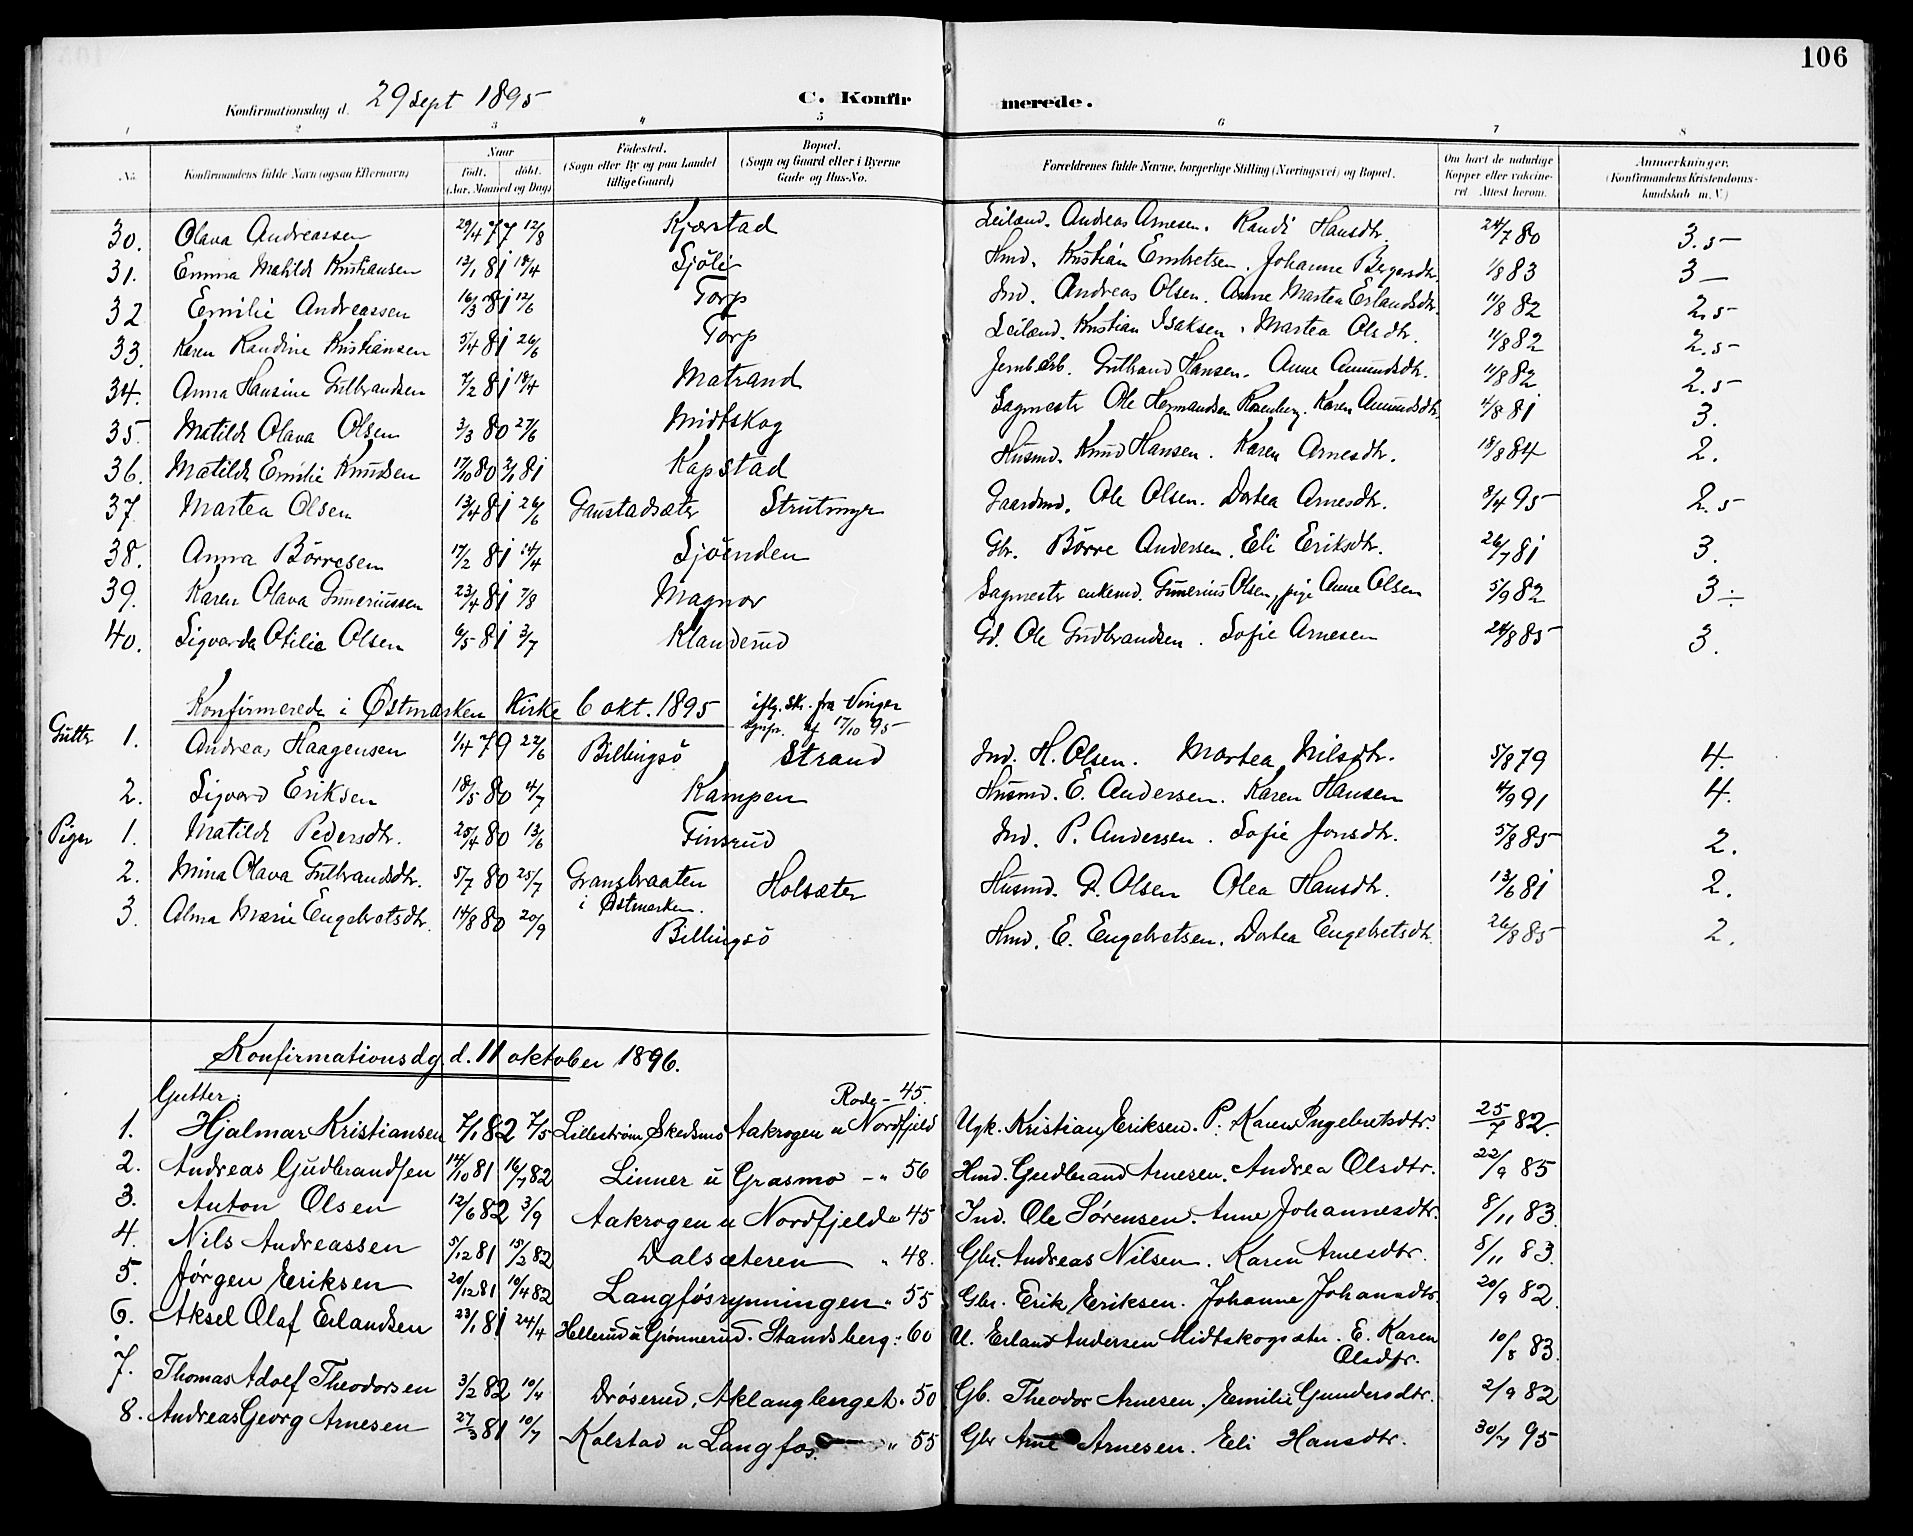 106
Konfirmationsdag d. 29 Sept 1895 C. Konfirmerede.
1 2 3 4 5 6 7 8
No. Konfirmandens fulde Navn (ogsaa Efternavn) Naar født. døbt. (Aar, Maaned og Dag) Fødested. (Sogn eller By og paa Landet tillige Gaard) Bopæl. (Sogn og Gaard eller i Byerne Gade og Hus-No. Forældrenes fulde Navne, borgerlige Stilling (Næringsvei) og Bopæl. Om havt de naturlige Kopper eller vaccineret Attest herom. Anmærkninger. (Konfirmandens Kristendomskundskab m. V.)
30. Olava Andreassen 29/4 77 12/8 Kjærstad Leilænd. Andreas Arnesen. Randi Hansdtr. 24/7 80 3.5
31. Emma Matilde Kristiansen 13/1 81 18/4 Sjöli Hmd. Kristian Embretsen. Johanne Bergersdtr. 1/8 83 3
32 Emilie Andreassen 16/3 81 12/6 Torp Ind. Andreas Olsen. Anne Martea Erlandsdtr. 11/8 82 2.5
33. Karen Randine Kristiansen 5/4 81 26/6 Torp Leilænd. Kristian Isaksen. Martea Olsdtr. 11/8 82 2.5
34. Anna Hansine Gulbrandsen 7/2 81 18/4 Matrand Jernb.arb. Gulbrand Hansen. Anne Amundsdtr. 11/8 82 2.5
35. Matilde Olava Olsen 3/3 80 27/6 Midtskog Sagmestr Ole Hermandsen Rosenberg. Karen Amundsdtr. 4/8 81 3.
36. Matilde Emilie Knudsen 17/10 80 2/1 81 Kapstad Husmd. Knud Hansen. Karen Arnesdtr. 18/8 84 2.
37 Martea Olsen 13/4 81 26/6 Gaustadsæter Strutmyr Gaardmd. Ole Olsen. Dortea Arnesdtr. 8/4 95 2.5
38. Anna Börresen 17/2 81 24/4 Sjöenden Gbr. Börre Andersen. Eli Eriksdtr. 26/7 81 3.
39. Karen Olava Gunerиussen 23/4 81 7/8 Magnor Sagmestr enkemd. Gunerius Olsen, pige Anne Olsen 5/9 82 3÷
40. Sigvarda Otilia Olsen 6/5 81 3/7 Klanderud Gd. Ole Gudbrandsen. Sofie Arnesen 24/8 85 3.
Konfirmerede i Østmarken Kirke 6 okt. 1895 iflg. Skr. fra Vinger
af 17/10 95
Gutter 1. Andreas Haagensen 1/4 79 22/6 Billingsö Strand Ind. H. Olsen. Martea Nilsdtr. 5/8 79 4.
2. Sigvard Eriksen 18/5 80 4/7 Kampen Husmd. E. Andersen. Karen Hansen 4/9 91 4.
Piger 1. Matilde Pedersdtr. 25/4 80 13/6 Finsrud Ind. P. Andersen. Sofie Jonsdtr. 5/8 85 2.
2. Mina Olava Gulbrandsdtr. 5/7 80 25/7 Gransbraaten i Østmarken. Holsæter Husmd. G. Olsen Olea Hansdtr. 13/6 81 2.
3. Alma Marie Engebretsdtr. 14/8 80 20/9 Billingsö Hmd. E. Engebretsen. Dortea Engebretsdtr. 26/8 85 2.
Konfirmationsdg. d. 11 oktober 1896.
Gutter:
1. Hjalmar Kristiansen 7/1 82 7/5 Lillestrøm Skedsmo Aakrogen u Nordfjeld Rode - 45. Ugk. Kristian Eriksen. P. Karen Ingebretsdtr. 25/7 82.
2. Andreas Gudbrandsen 14/10 81 16/7 82 Linner u Grasmo -" 56 Hmd. Gudbrand Arnesen. Andrea Olsdtr. 22/9 85
3. Anton Olsen 12/6 82 3/9 Aakrogen u Nordfjeld " 45 Ind. Ole Sørensen. Anne Johannesdtr. 8/11 83.
4. Nils Andreassen 5/12 81 15/2 82 Dalsæteren " 48. Gbr. Andreas Nilsen. Karen Arnesdtr. 8/11 83.
5. Jørgen Eriksen 20/12 81 10/4 82 Langfósrynningen " 55 Gbr. Erik Eriksen. Johanne Johansdtr. 20/9 82.
6. Aksel Olaf Erlandsen 23/1 81 24/4 Hellerud u Grønnerud. Standsberg " 60 U. Erland Andersen Midtskogsætr. E. Karen Olsdtr. 10/8 83.
7. Thomas Adolf Theodorsen 3/2 82 10/4 Drøserud, Aklangberget " 50 Gb. Theodor Arnesen. Emilie Gundersdtr. 2/9 82
8. Andreas Georg Arnesen 27/3 81 10/7 Kolstad u Langfos " 55 Gbr Arne Arnesen. Eli Hansdtr. 30/7 95